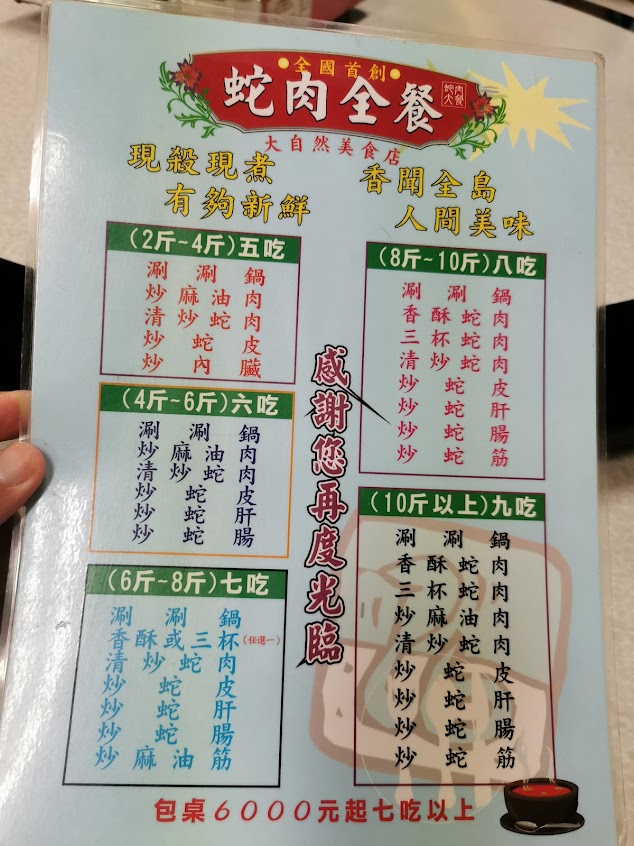 全國首創
蛇肉全餐
蛇肉大餐
大自然美食店
現殺現煮
有夠新鮮
香聞全島
人間美味
(2斤~4斤)五吃
涮涮鍋
炒麻油肉
清炒蛇肉
炒蛇皮
炒內臟
(4斤~6斤)六吃
涮涮鍋
炒麻油肉
清炒蛇肉
炒蛇皮
炒蛇肝
炒蛇腸
(6斤~8斤)七吃
涮涮鍋
香酥或三杯(任選一)
清炒蛇肉
炒蛇皮
炒蛇肝
炒蛇腸
炒麻油筋
感謝您再度光臨
(8斤~10斤)八吃
涮涮鍋
香酥蛇肉
三杯蛇肉
清炒蛇肉
炒蛇皮
炒蛇肝
炒蛇腸
炒蛇筋
(10斤以上)九吃
涮涮鍋
香酥蛇肉
三杯蛇肉
炒麻油肉
清炒蛇肉
炒蛇皮
炒蛇肝
炒蛇腸
炒蛇筋
包桌6000元起七吃以上